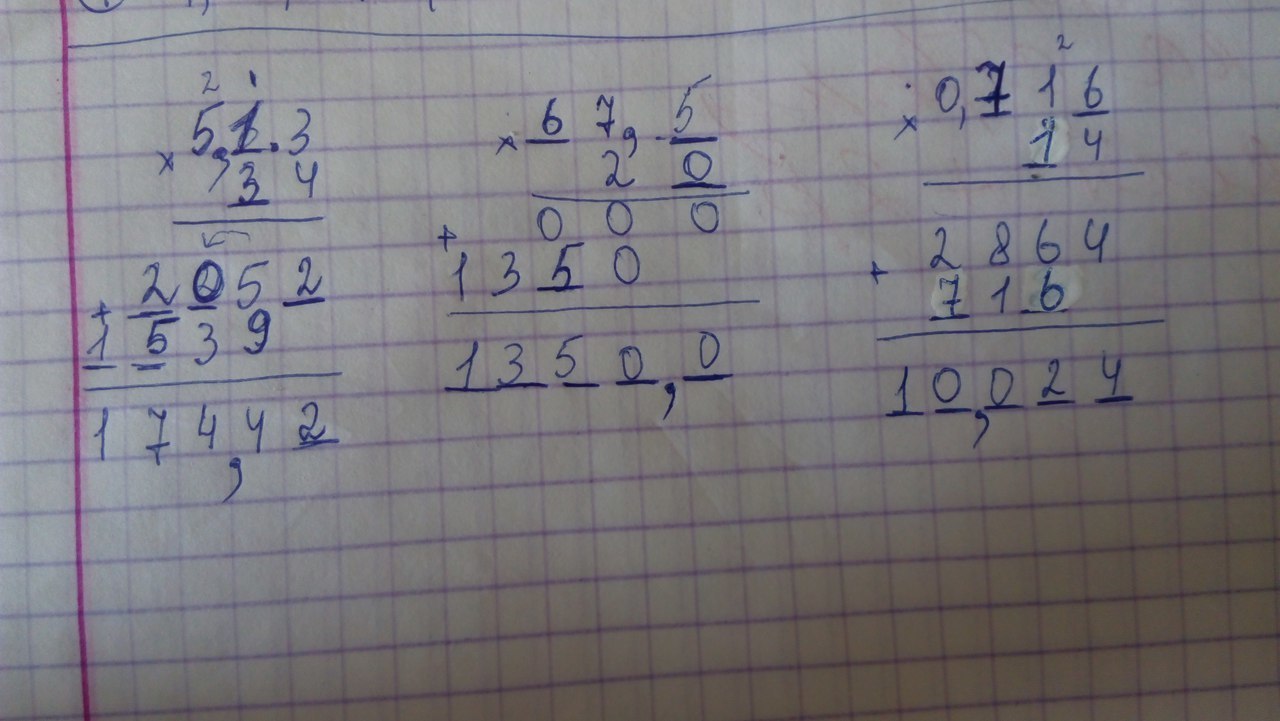 2 1
5,1.3
× 3 4
+ 2 0 5 2
1 5 3 9
1 7 4,4 2
× 6 7,5
2 0
0 0 0
+ 1 3 5 0
1 3 5 0,0
2
× 0,7 1 6
1 4
2 8 6 4
+ 7 1 6
1 0,0 2 4